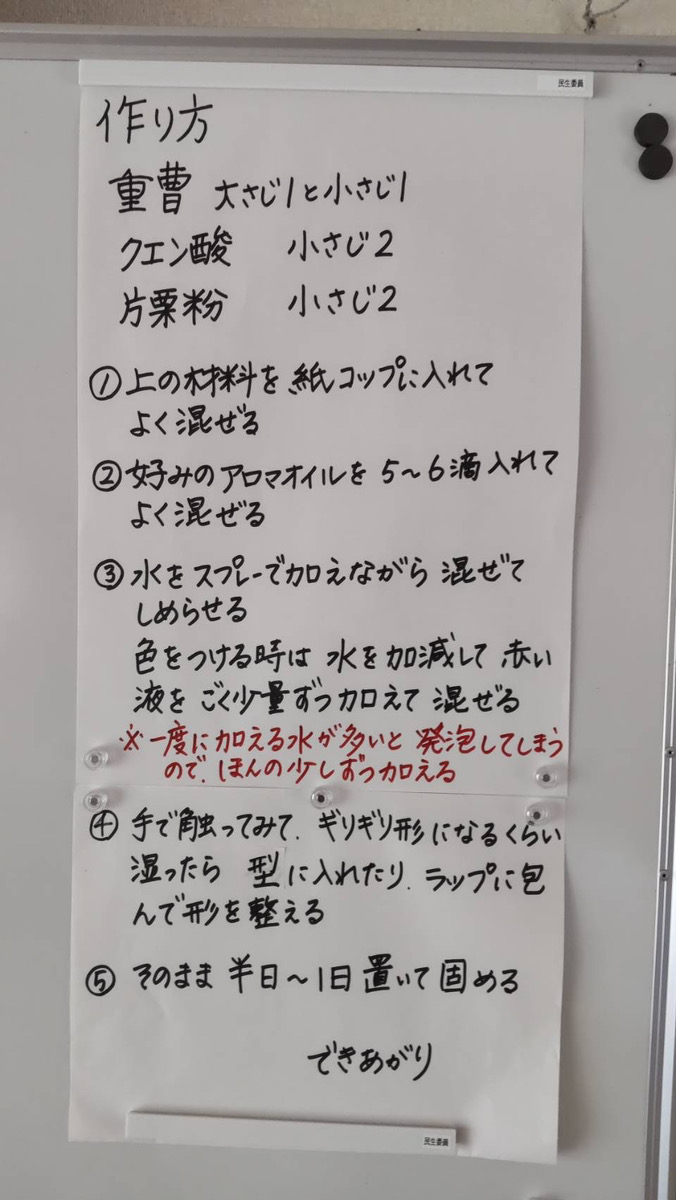 民生委員
作り方
重曹 大さじ1と小さじ1
クエン酸 小さじ2
片栗粉 小さじ2
①上の材料を紙コップに入れて
よく混ぜる
②好みのアロマオイルを5〜6滴入れて
よく混ぜる
③水をスプレーで加えながら混ぜて
しめらせる
色をつける時は水を加減して赤い
液をごく少量ずつ加えて混ぜる
※一度に加える水が多いと発泡してしまう
ので、ほんの少しずつ加える
④手で触ってみて、ギリギリ形になるくらい
湿ったら型に入れたり、ラップに包
んで形を整える
⑤そのまま半日〜1日置いて固める
できあがり
民生委員